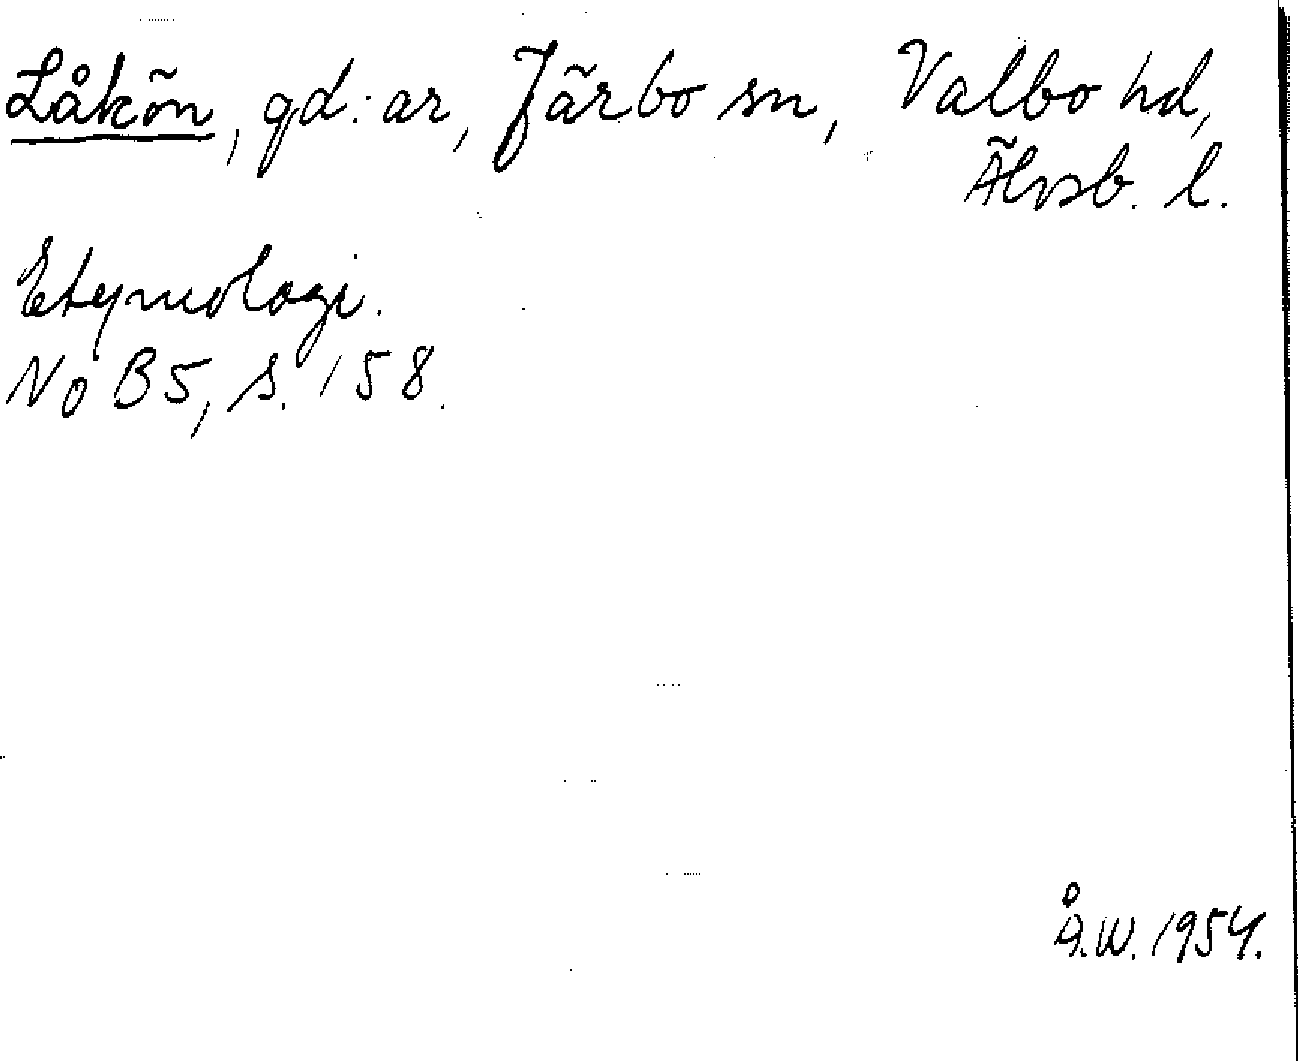 Låkön, gd:ar, Järbo sn, Valbo hd,
Älvsb. l.
Etymologi.
NoB5, s. 158.
Å.W. 1954.